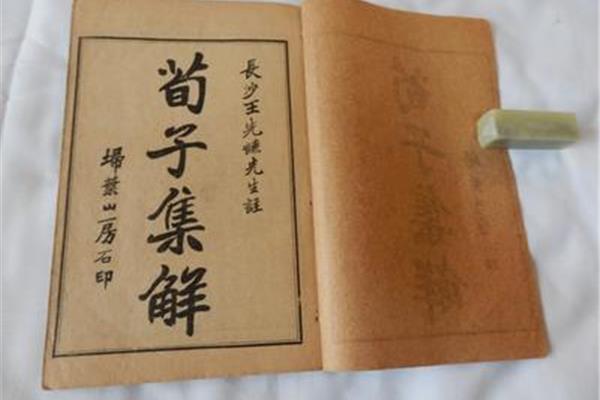 長沙王先謙先生註
荀子集解
埽葉山房石印